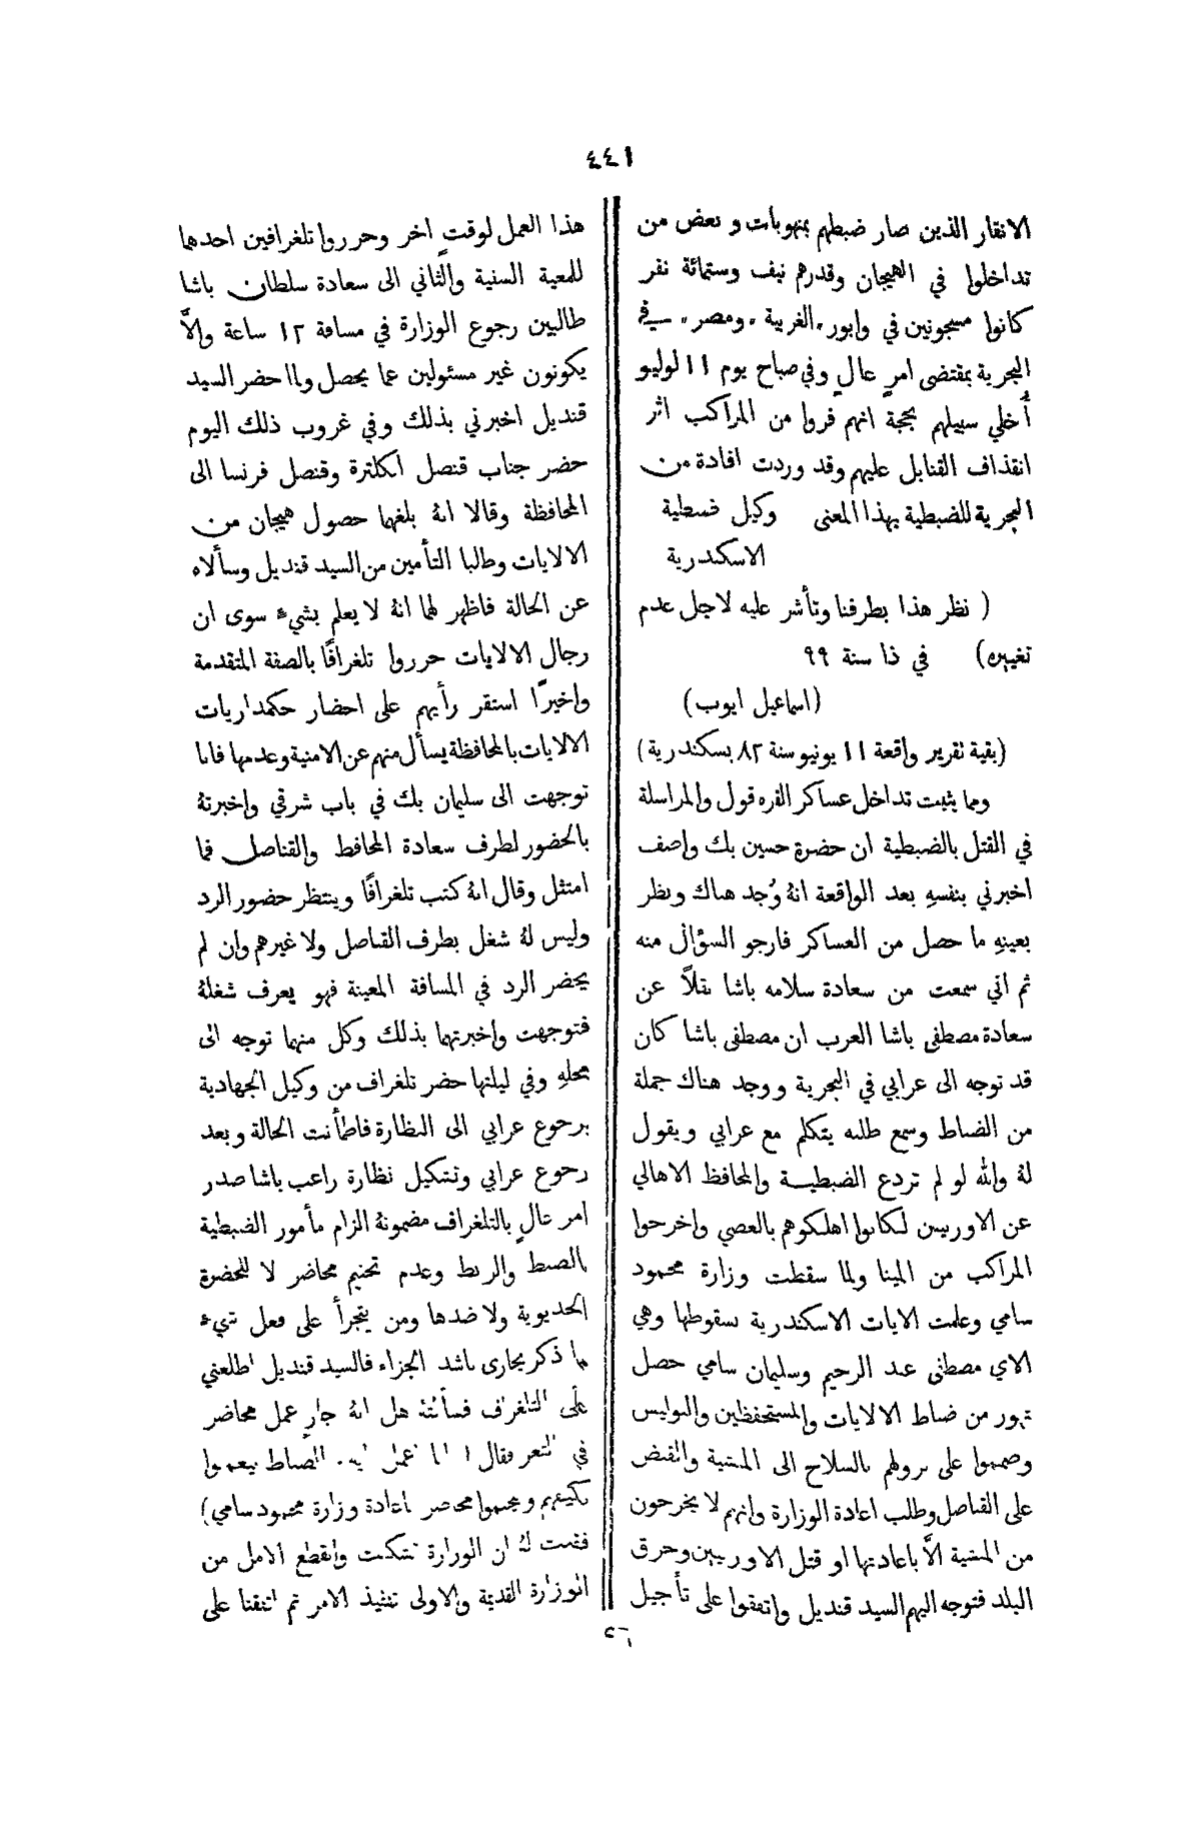 ٤٤١
الانقار الذين صار ضبطهم بمنهوبات وبعض من
تداخلوا في الهيجان وقدرهم نيف وستمائة نفر
كانوا مسجونين في وابور الغربية ومصر في
البحرية بمقتضى امرٍ عالٍ وفي صباح يوم ١١ لوليو
أُخلي سبيلهم بحجة انهم فروا من المراكب اثر
انقذاف القنابل عليهم وقد وردت افادة من
البحرية للضبطية بهذا المعنى وكيل ضبطية
الاسكندرية
( نظر هذا بطرفنا وتأشر عليه لاجل عدم
تغييره) في ذا سنة ٩٩
(اسماعيل ايوب)
(بقية تقرير واقعة ١١ يونيو سنة ٨٢ بسكندرية)
ومما يثبت تداخل عساكر القره قول والمراسلة
في القتل بالضبطية ان حضرة حسين بك واصف
اخبرني بنفسهِ بعد الواقعة انهُ وُجد هناك ونظر
بعينهِ ما حصل من العساكر فارجو السؤال منه
ثم اني سمعت من سعادة سلامه باشا نقلاً عن
سعادة مصطفى باشا العرب ان مصطفى باشا كان
قد توجه الى عرابي في البحرية ووجد هناك جملة
من الضباط وسمع طلبه يتكلم مع عرابي ويقول
لهُ والله لو لم تردع الضبطية والمحافظ الاهالي
عن الاوربيين لكانوا اهلكوهم بالعصي واخرجوا
المراكب من المينا ولما سقطت وزارة محمود
سامي وعلمت الايات الاسكندرية بسقوطها وهي
الاي مصطفى عبد الرحيم وسليمان سامي حصل
تهور من ضباط الالايات والمستحفظين والبوليس
وصمموا على نزولهم بالسلاح الى المنشية والقبض
على القناصل وطلب اعادة الوزارة وانهم لا يخرجون
من المنشية الاَّ باعادتها او قتل الاوربيين وحرق
البلد فتوجه اليهم السيد قنديل واتفقوا على تأجيل
هذا العمل لوقتٍ اخر وحرروا تلغرافين احدهما
للمعية السنية والثاني الى سعادة سلطان باشا
طالبين رجوع الوزارة في مسافة ١٢ ساعة والاَّ
يكونون غير مسئولين عما يحصل ولما حضر السيد
قنديل اخبرني بذلك وفي غروب ذلك اليوم
حضر جناب قنصل انكلترة وقنصل فرنسا الى
المحافظة وقالا انهُ بلغهما حصول هيجان من
الالايات وطلبا التأمين من السيد قنديل وسألاه
عن الحالة فاظهر لهما انهُ لا يعلم بشيءٍ سوى ان
رجال الالايات حرروا تلغرافًا بالصفة المتقدمة
واخيرًا استقر رأيهم على احضار حكمداريات
الالايات بالمحافظة يسأل منهم عن الامنية وعدمها فانا
توجهت الى سليمان بك في باب شرقي واخبرتهُ
بالحضور لطرف سعادة المحافظ والقناصل فما
امتثل وقال انهُ كتب تلغرافًا وينتظر حضور الرد
وليس لهُ شغل بطرف القناصل ولا غيرهم وان لم
يحضر الرد في المسافة المعينة فهو يعرف شغلهُ
فتوجهت واخبرتهما بذلك وكل منهما توجه الى
محلهِ وفي ليلتها حضر تلغراف من وكيل الجهادية
برجوع عرابي الى النظارة فاطمأنت الحالة وبعد
رجوع عرابي وتشكيل نظارة راغب باشا صدر
امر عالٍ بالتلغراف مضمونهُ الزام مأمور الضبطية
بالضبط والربط وعدم تختيم محاضر لا للحضرة
الخديوية ولا ضدها ومن يتجرأ على فعل شيءٍ
مما ذكر يجازى باشد الجزاء فالسيد قنديل اطلعني
على التلغراف فسألتهُ هل انهُ جارٍ عمل محاضر
في الثغر فقال عمل الضباط
وختموا محاضر باعادة وزارة محمود سامي)
فقلت لهُ ان الوزارة تشكلت وانقطع الامل من
الوزارة القديمة والاولى تنفيذ الامر ثم اتفقنا على
٥٦